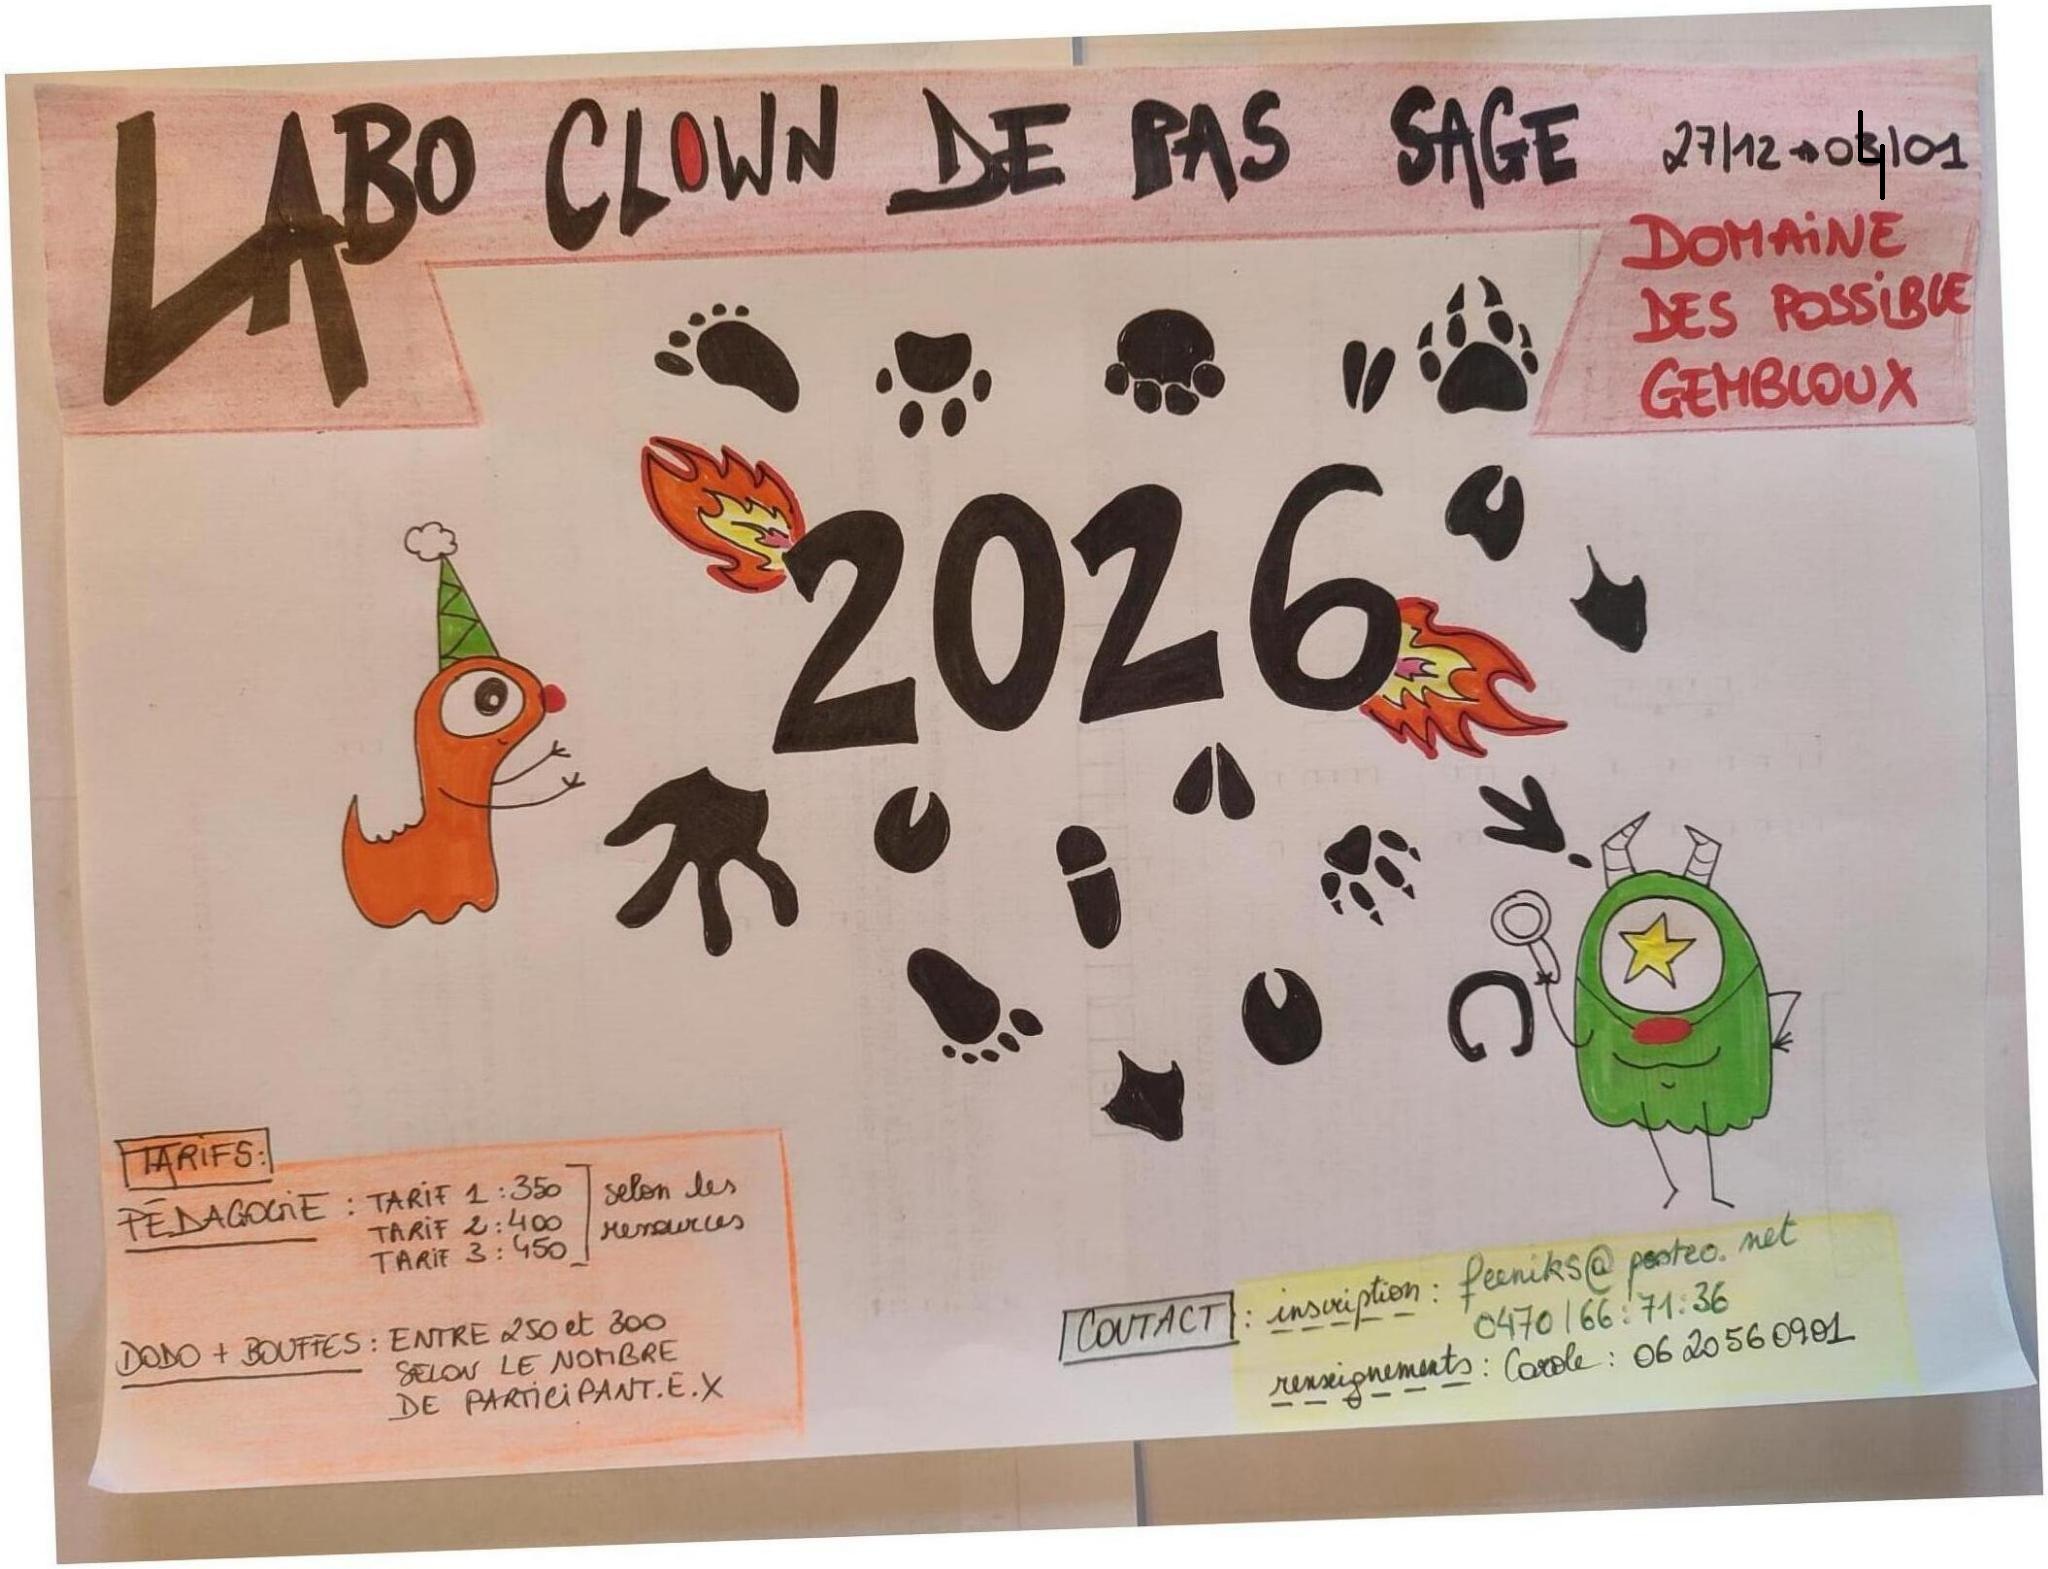 LABO CLOWN DE PAS SAGE
27/12 → 04/01
DOMAINE
DES POSSIBLE
GEMBLOUX
2026
TARIFS:
PÉDAGOGIE : TARIF 1 : 350
TARIF 2 : 400
TARIF 3 : 450
selon les
ressources
DODO + BOUFFES : ENTRE 250 et 300
SELON LE NOMBRE
DE PARTICIPANT.E.X
CONTACT : inscription : feeniks@posteo.net
0470/66:71:36
renseignements : Carole : 06 20 56 09 01